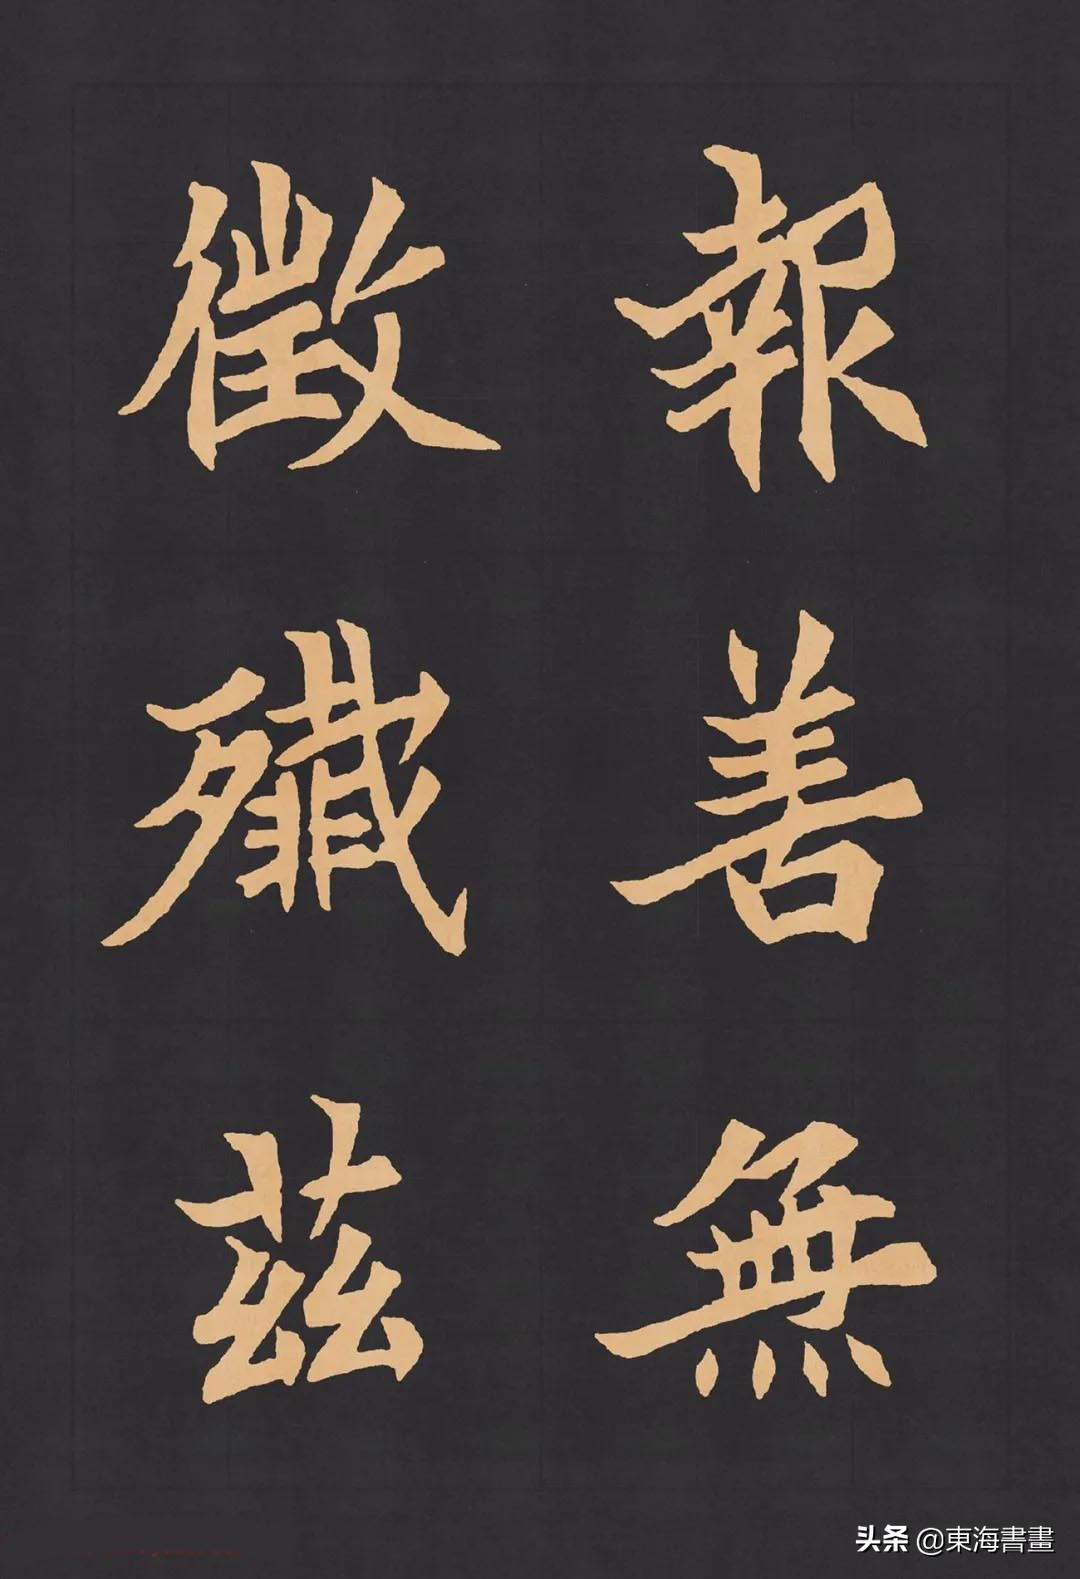 報善無
徵殲茲
头条 @東海書畫